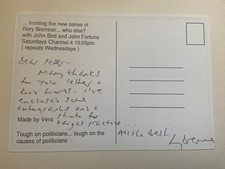 ... fronting the new series of
Rory Bremner... who else?
with John Bird and John Fortune
Saturdays Channel 4 10:05pm
( repeats Wednesdays )
Dear Peter -
Many thanks
for your letter &
kind words. I've
enclosed some
autographs and a
photo for
target practice...
Made by Vera
Tough on politicians... tough on the
causes of politicians
All the best
Rory Bremner